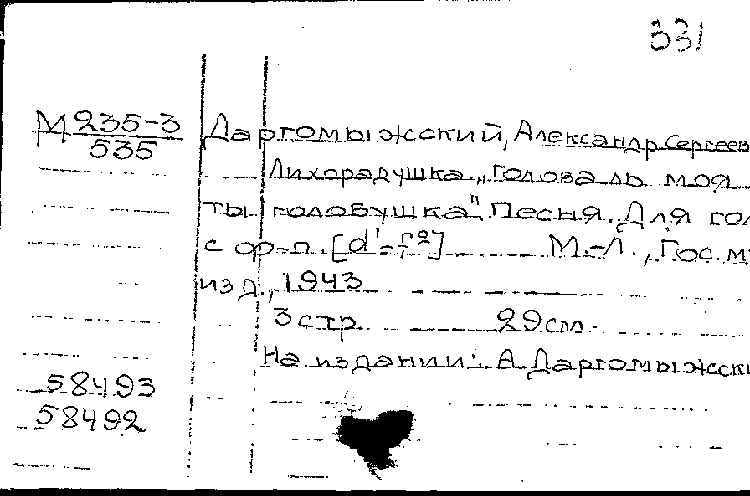 331
М 235-3
535
Даргомыжский, Александр Сергеев
Лихорадушка "Голова ль моя
ты голобушка". Песня. Для гол
с ф-п. [d'-f²] М.-Л., Гос. м
изд., 1943
3 стр. 29 см.
На издании: А. Даргомыжски
58493
58492